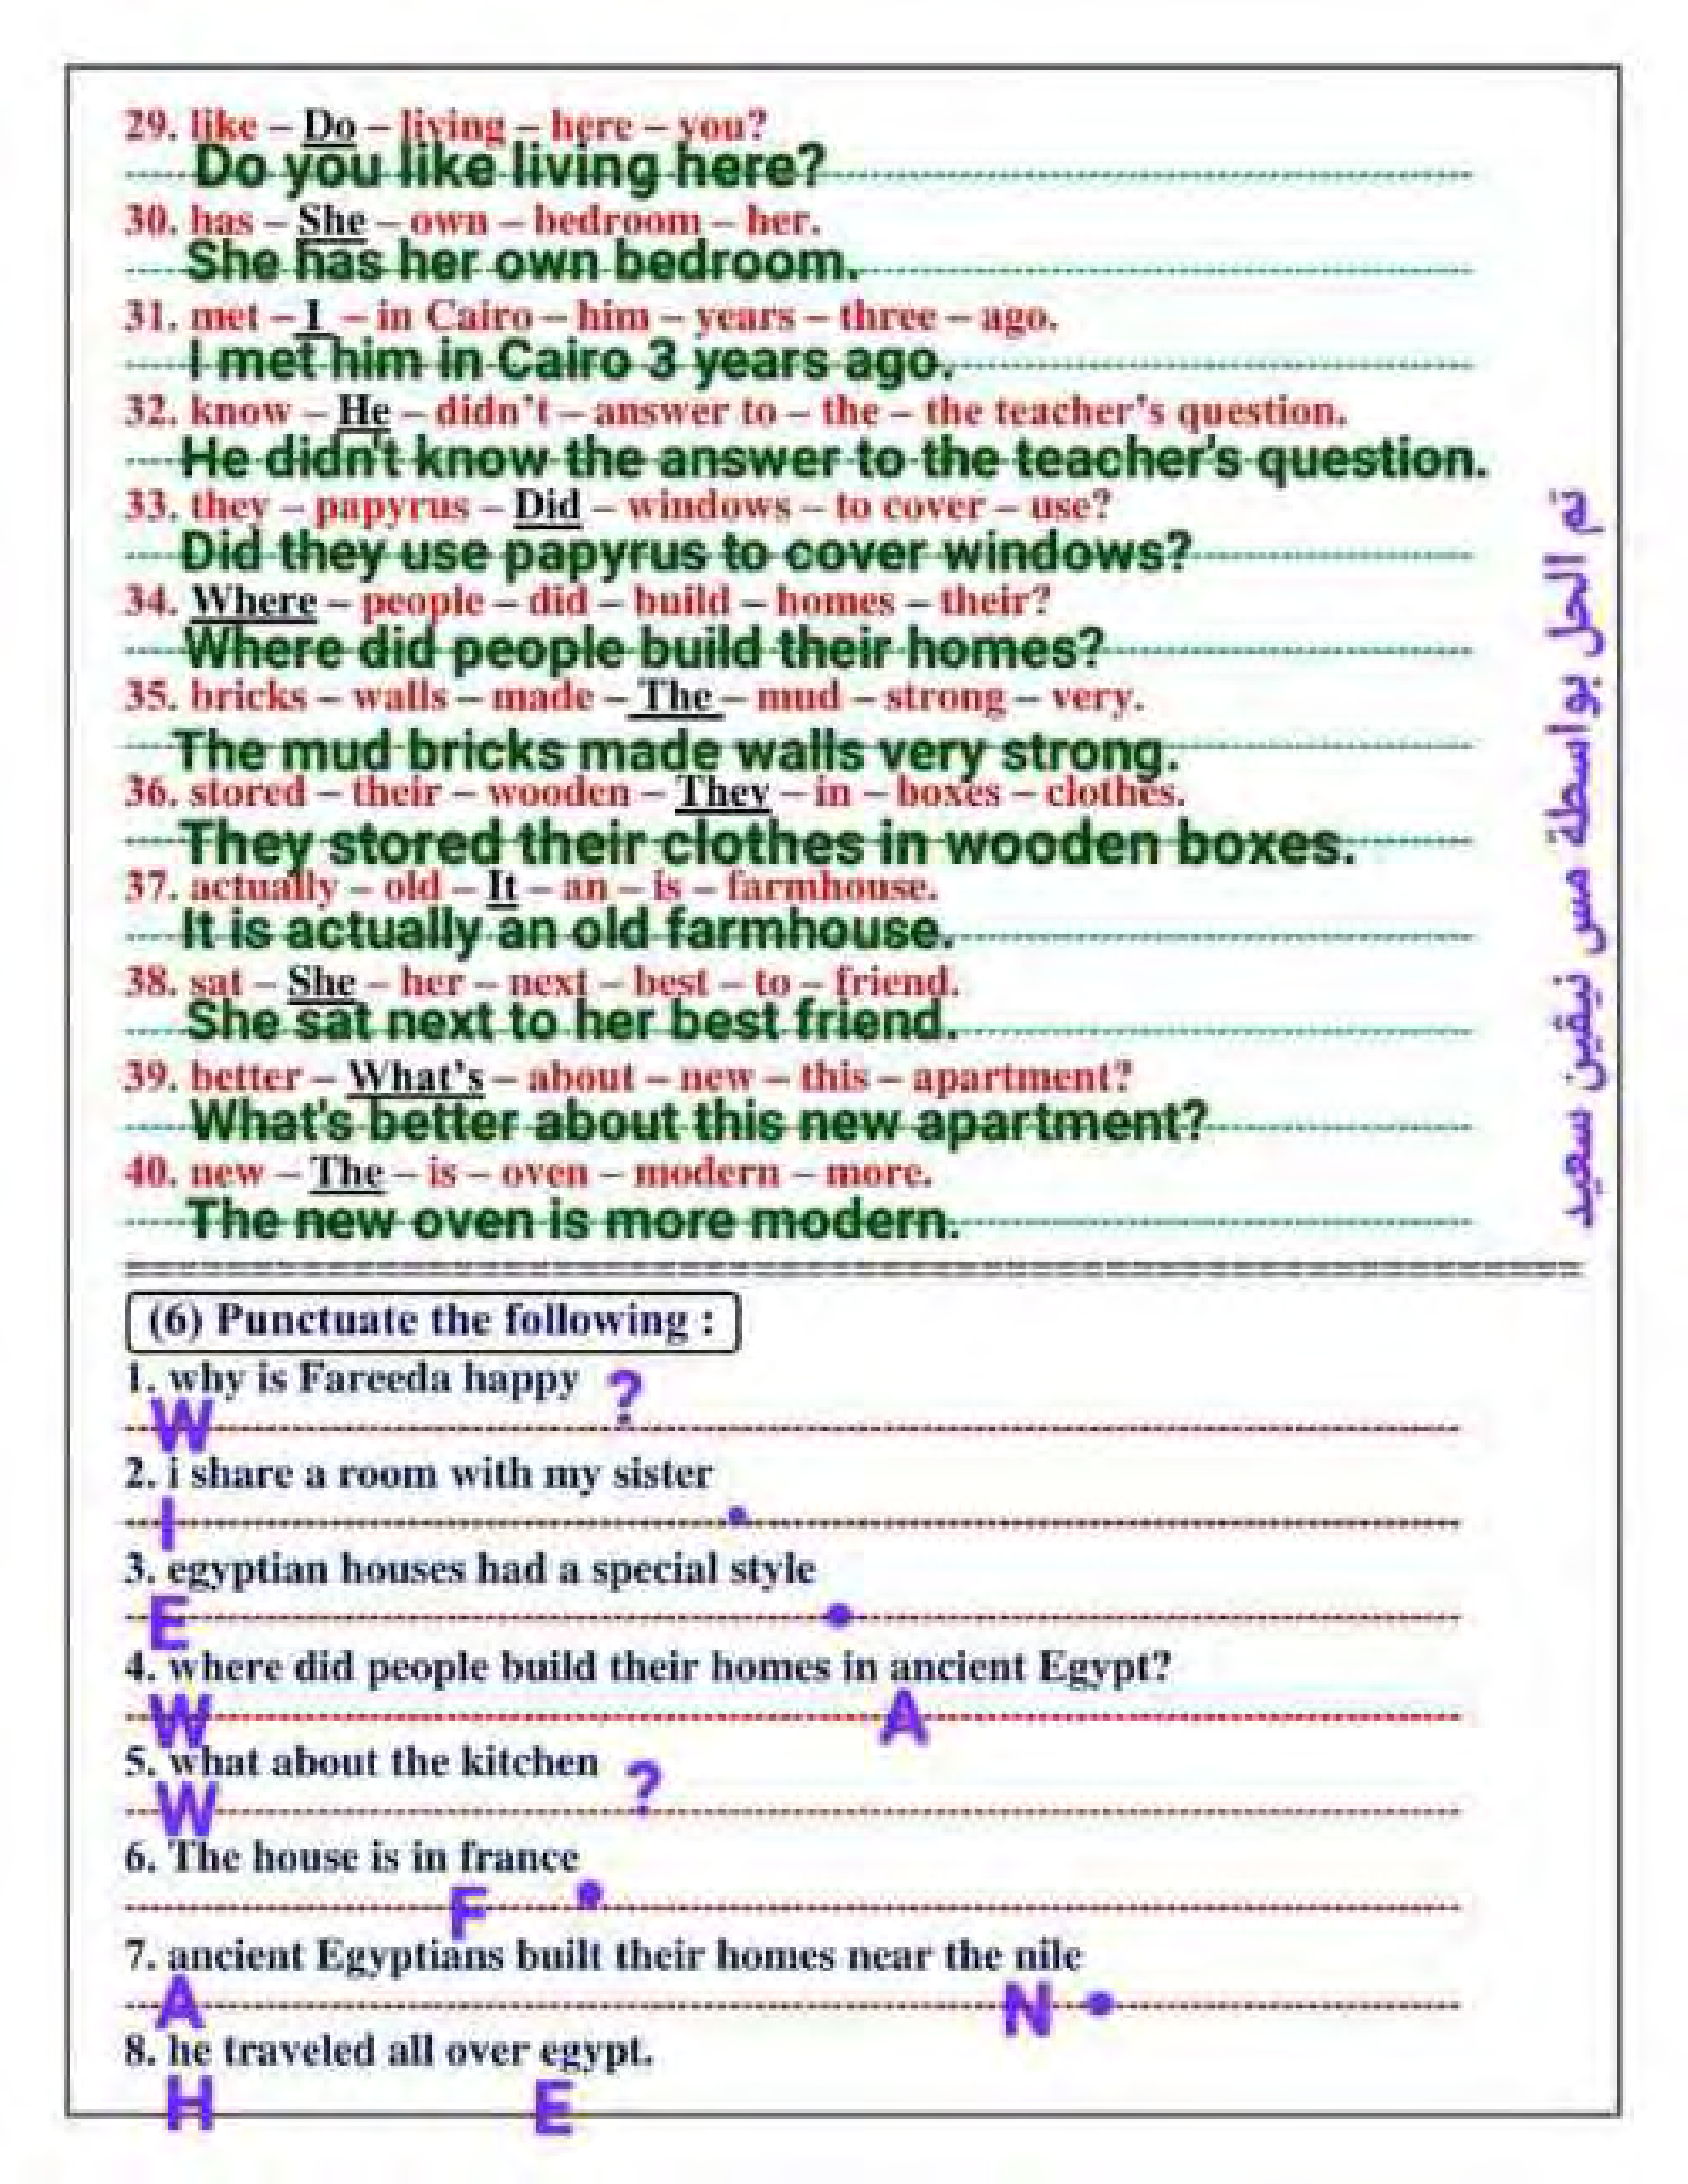 29. like – Do – living – here – you?
Do you like living here?
30. has – She – own – bedroom – her.
She has her own bedroom.
31. met – I – in Cairo – him – years – three – ago.
I met him in Cairo 3 years ago.
32. know – He – didn't – answer to – the – the teacher's question.
He didn't know the answer to the teacher's question.
33. they – papyrus – Did – windows – to cover – use?
Did they use papyrus to cover windows?
34. Where – people – did – build – homes – their?
Where did people build their homes?
35. bricks – walls – made – The – mud – strong – very.
The mud bricks made walls very strong.
36. stored – their – wooden – They – in – boxes – clothes.
They stored their clothes in wooden boxes.
37. actually – old – It – an – is – farmhouse.
It is actually an old farmhouse.
38. sat – She – her – next – best – to – friend.
She sat next to her best friend.
39. better – What's – about – new – this – apartment?
What's better about this new apartment?
40. new – The – is – oven – modern – more.
The new oven is more modern.
تم الحل بواسطة مس نيفين سعيد
(6) Punctuate the following :
1. why is Fareeda happy ?
W
2. i share a room with my sister
I .
3. egyptian houses had a special style
E .
4. where did people build their homes in ancient Egypt?
W A
5. what about the kitchen ?
W
6. The house is in france
F .
7. ancient Egyptians built their homes near the nile
A N .
8. he traveled all over egypt.
H E